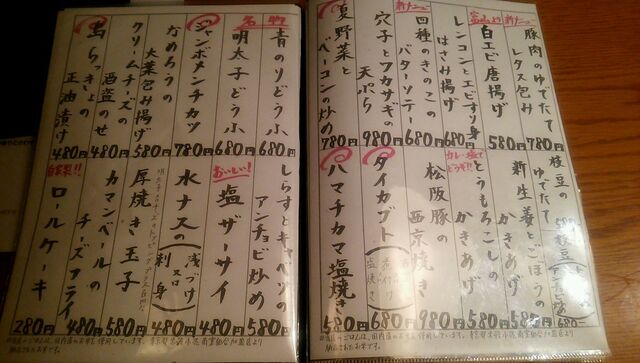 新メニュー
豚肉のゆでたて
レタス包み
780円
富山より
白エビ唐揚げ
580円
レンコンとエビすり身
はさみ揚げ
680円
新メニュー
四種のきのこの
バターソテー
680円
穴子とワカサギの
天ぷら
980円
夏野菜と
ベーコンの炒め
780円
枝豆の
ゆでたて
新生姜とごぼうの
かきあげ
580円
カレー塩で
どうぞ!!
とうもろこしの
かきあげ
580円
松阪豚の
西京焼き
980円
タイカブト
塩焼き
ハマチカマ塩焼き
580円
名物
青のりどうふ
680円
明太子どうふ
680円
ジャンボメンチカツ
780円
なめろうの
大葉包み揚げ
580円
クリームチーズの
酒盗のせ
480円
島らっきょの
正油漬け
480円
しらすとキャベツの
アンチョビ炒め
580円
おいしい!
塩ザーサイ
480円
水ナスの(浅づけ又は刺身)
580円
厚焼き玉子
580円
カマンベールの
チーズフライ
480円
自家製!!
ロールケーキ
280円